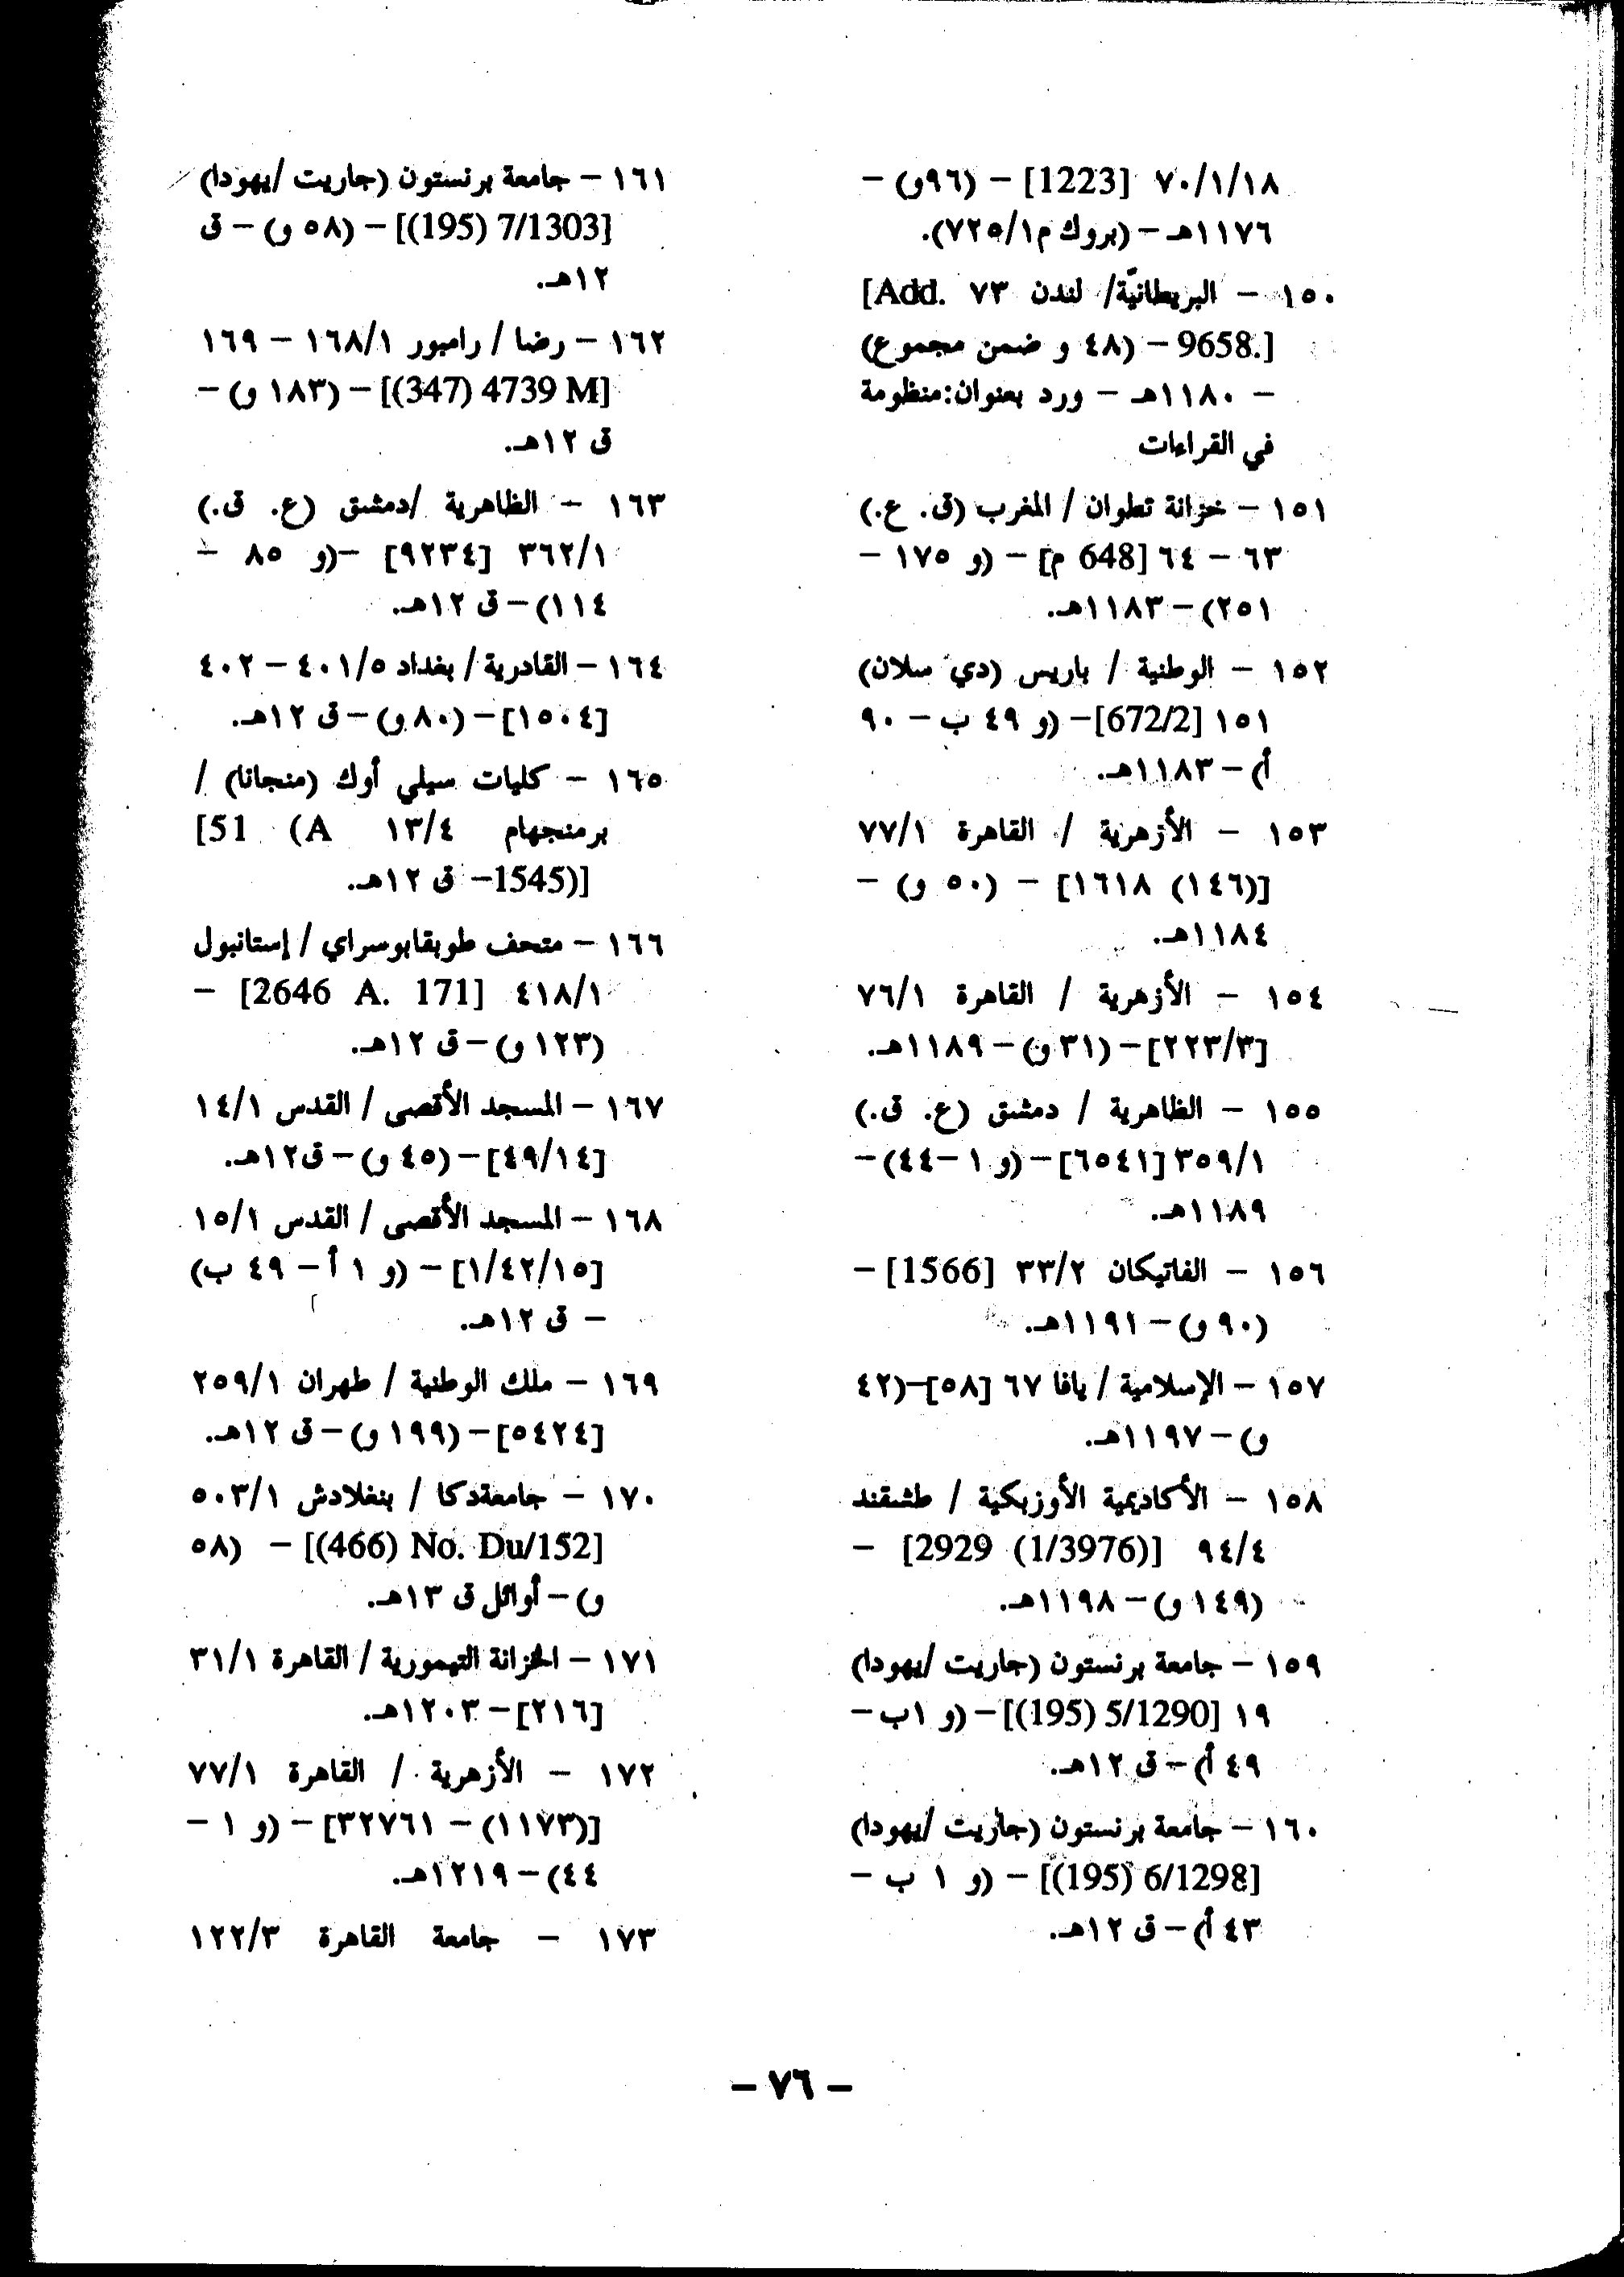 ٧٠/١/١٨ [1223] – (٩٦و) –
١١٧٦هـ – (بروك م٧٢٥/١).
١٥٠ – البريطانيّة/ لندن ٧٣ [Add.
9658.] – (٤٨ و ضمن مجموع)
– ١١٨٠هـ – ورد بعنوان:منظومة
في القراءات
١٥١ – خزانة تطوان / المغرب (ق. ع.)
٦٣ – ٦٤ [648 م] – (و ١٧٥ –
٢٥١) – ١١٨٣هـ.
١٥٢ – الوطنية / باريس (دي سلان)
١٥١ [672/2] – (و ٤٩ ب – ٩٠
أ) – ١١٨٣هـ.
١٥٣ – الأزهرية / القاهرة ٧٧/١
[(١٤٦) ١٦١٨] – (٥٠ و) –
١١٨٤هـ.
١٥٤ – الأزهرية / القاهرة ٧٦/١
[٢٢٣/٣] – (٣١ و) – ١١٨٩هـ.
١٥٥ – الظاهرية / دمشق (ع. ق.)
٣٥٩/١ [٦٥٤١] – (و ١ – ٤٤) –
١١٨٩هـ.
١٥٦ – الفاتيكان ٣٣/٢ [1566] –
(٩٠ و) – ١١٩١هـ.
١٥٧ – الإسلامية / يافا ٦٧ [٥٨]–(٤٢
و) – ١١٩٧هـ.
١٥٨ – الأكاديمية الأوزبكية / طشقند
٩٤/٤ [2929 (1/3976)] –
(١٤٩ و) – ١١٩٨هـ.
١٥٩ – جامعة برنستون (جاريت /يهودا)
١٩ [1290/5 (195)] – (و ١ب –
٤٩ أ) – ق ١٢هـ.
١٦٠ – جامعة برنستون (جاريت /يهودا)
[1298/6 (195)] – (و ١ ب –
٤٣ أ) – ق ١٢هـ.
١٦١ – جامعة برنستون (جاريت /يهودا)
[1303/7 (195)] – (٥٨ و) – ق
١٢هـ.
١٦٢ – رضا / رامبور ١٦٨/١ – ١٦٩
[4739 M (347)] – (١٨٣ و) –
ق ١٢هـ.
١٦٣ – الظاهرية /دمشق (ع. ق.)
٣٦٢/١ [٩٢٣٤] –(و ٨٥ –
١١٤) – ق ١٢هـ.
١٦٤ – القادرية / بغداد ٤٠١/٥ – ٤٠٢
[١٥٠٤] – (٨٠ و) – ق ١٢هـ.
١٦٥ – كليات سيلي أوك (منجانا) /
برمنجهام ١٣/٤ [51 (A
1545)] – ق ١٢هـ.
١٦٦ – متحف طوبقابوسراي / إستانبول
٤١٨/١ [2646 A. 171] –
(١٢٣ و) – ق ١٢هـ.
١٦٧ – المسجد الأقصى / القدس ١٤/١
[٤٩/١٤] – (٤٥ و) – ق١٢هـ.
١٦٨ – المسجد الأقصى / القدس ١٥/١
[١/٤٢/١٥] – (و ١ أ – ٤٩ ب)
– ق ١٢هـ.
١٦٩ – ملك الوطنية / طهران ٢٥٩/١
[٥٤٢٤] – (١٩٩ و) – ق ١٢هـ.
١٧٠ – جامعةدكا / بنغلادش ٥٠٣/١
[(466) No. Du/152] – (٥٨
و) – أوائل ق ١٣هـ.
١٧١ – الخزانة التيمورية / القاهرة ٣١/١
[٢١٦] – ١٢٠٣هـ.
١٧٢ – الأزهرية / القاهرة ٧٧/١
[(١١٧٣) – ٣٢٧٦١] – (و ١ –
٤٤) – ١٢١٩هـ.
١٧٣ – جامعة القاهرة ١٢٢/٣
– ٧٦ –